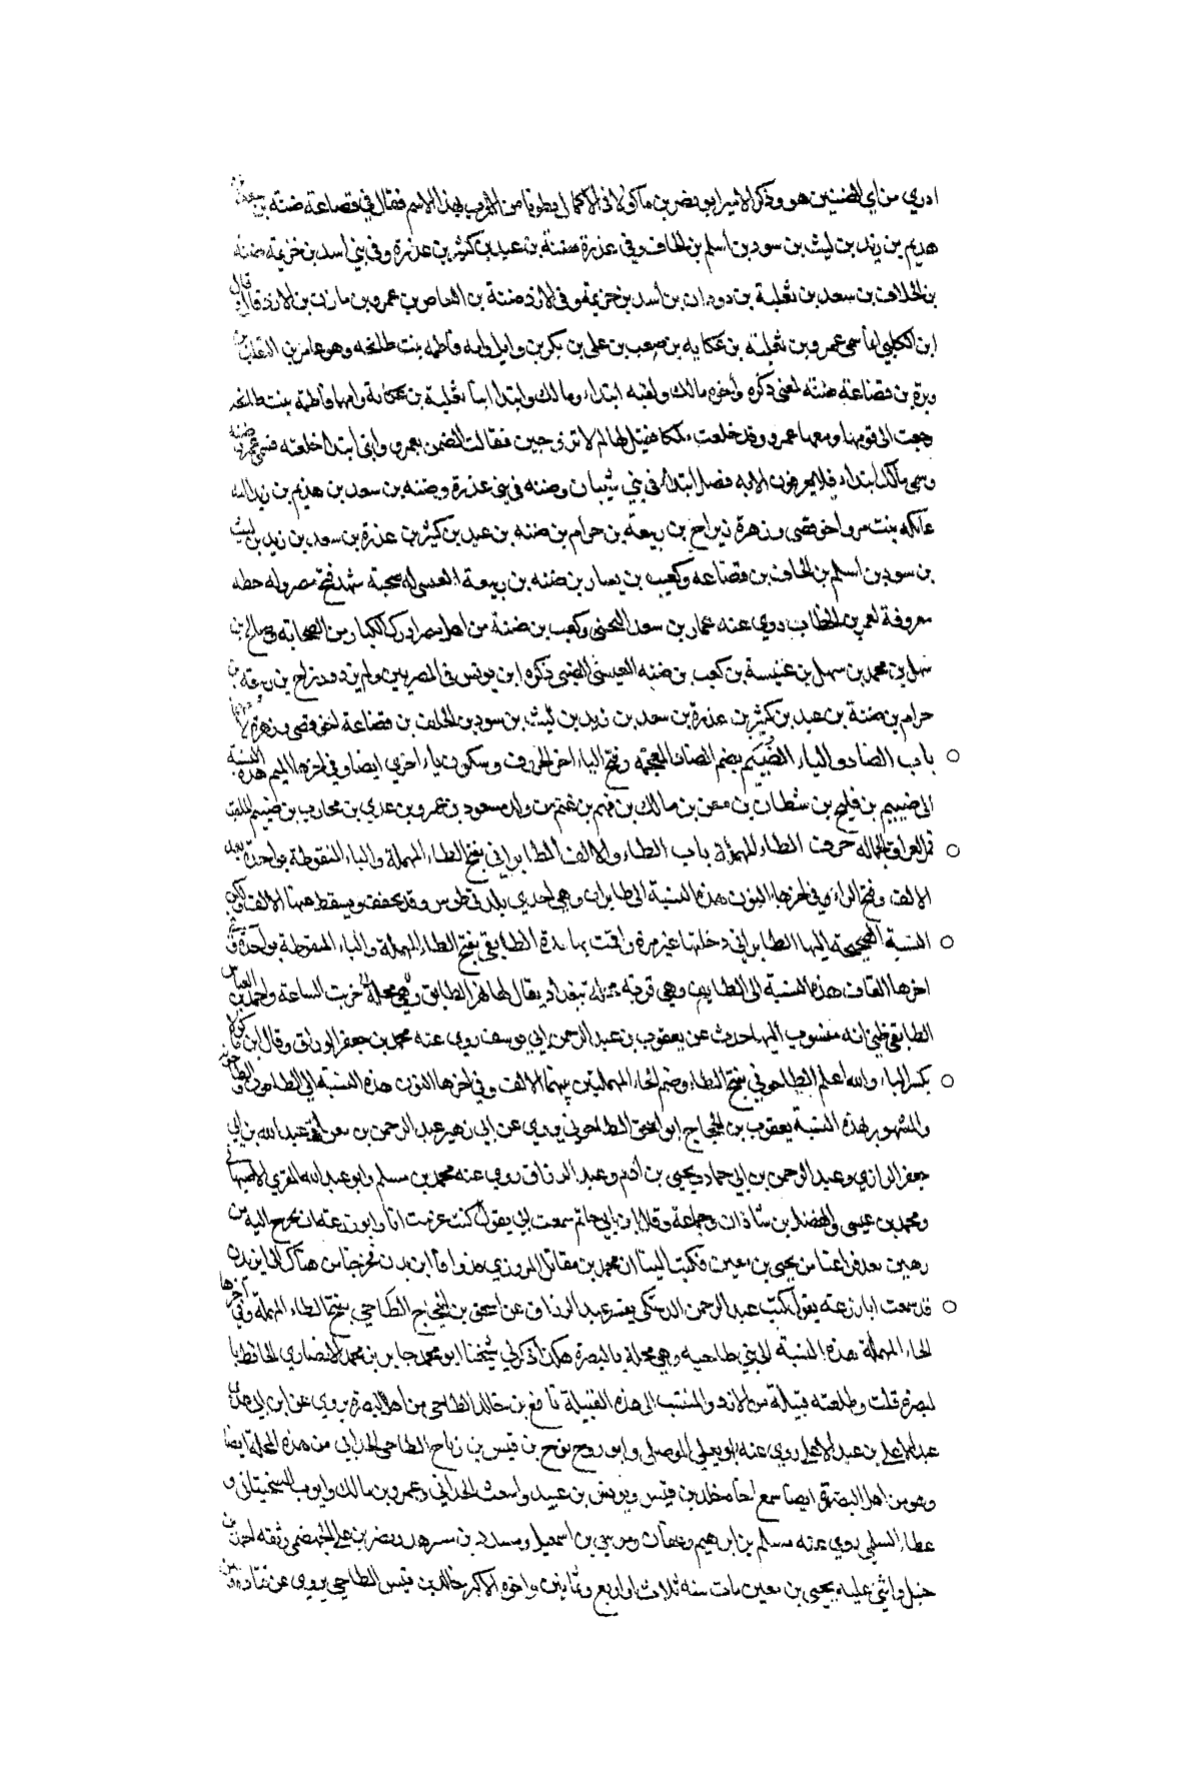 ادري من اي الضنيين هو وذكر الامير ابو نصر بن ماكولا في الاكمال بطونا من العرب بهذا الاسم فقال في قضاعة ضنة بن سعد
هديم بن زيد بن ليث بن سود بن اسلم بن الحاف وفي عذرة ضنة بن عبد بن كثير بن عذرة وفي بني اسد بن خزيمه ضنة
بن الحلاف بن سعد بن ثعلبة بن دودان بن أسد بن خزيمة وفي الازد ضنة بن العاص بن عمرو بن مازن بن الازد قال
ابن الكلبي انما سمى عمرو بن ثعلبة بن عكابه بن صعب بن علي بن بكر بن وايل وامه فاطمه بنت طابخه وهو عامر بن الثعلب
وبرة بن قضاعة ضنه لمعنى ذكره وأخوه مالك ولقبه ابتداء ومالك وابتدا ابنا ثعلبة بن عكابة وامها فاطمة بنت طابخه
رجعت الى قومها ومعها عمرو وقد خلعت مالكا فقيل لها لم لا تزوجين فقالت الضن بعمرو واني ابتدا خلعته فسمي عمرو ضنه
وسمى مالك ابتداء فلا يعرفون الا به فصار ابتدا في بني شيبان وضنه في بني عذرة وضنه بن سعد بن هذيم بن زيد امه
عاتكه بنت مر واخو قصى وزهرة رزاح بن ربيعة بن حرام بن ضنه بن عبد بن كثير بن عذرة بن سعد بن زيد بن ليث
بن سود بن اسلم بن الحاف بن قضاعه وكعب بن يسار بن ضنه بن ربيعة العبسي له صحبة شهد فتح مصر وله خطه
معروفة لعمر بن الخطاب روى عنه عمار بن سعد التجيبي وكعب بن ضنة من اهل مصر ادرك الكبار من الصحابة وصالح بن
سهل بن محمد بن سهل بن عنبسة بن كعب بن ضنه العبسي الضني ذكره ابن يونس في المصريين ولم يزد ورزاح بن ربيعة بن
حرام بن ضنة بن عبد بن كثير بن عذرة بن سعد بن زيد بن ليث بن سود بن الحاف بن قضاعة اخو قصى وزهرة لا
باب الضاد والياء الضييم بضم الضاد المعجمة وفتح الياء اخر الحروف وسكون ياء اخرى ايضا وفي اخرها الميم هذه النسبة
الى ضييم بن فليح بن شطان بن معن بن مالك بن فهم بن غنم من ولده مسعود بن عمرو بن عدي بن محارب بن ضييم الملقب
قمر العراق لجماله حرف الطاء المهملة باب الطاء والالف الطابراني بفتح الطاء المهملة والباء المنقوطة بواحدة بعد
الالف وفتح الراء وفي اخرها النون هذه النسبة الى طابران وهي احدى بلدتي طوس وقد يخفف ويسقط عنها الالف ولكن
النسبة الصحيحة اليها الطابراني دخلتها غير مرة واقمت بها مدة الطابقي بفتح الطاء المهملة والباء المنقوطة بواحدة وفي
اخرها القاف هذه النسبة الى الطابق وهي قرية محلة ببغداد يقال لها نهر الطابق وهي محلة خربت الساعة واحمد بن العباس
الطابقي ظني انه منسوب اليها حدث عن يعقوب بن عبد الرحمن ابي يوسف روى عنه محمد بن جعفر الوراق وقال ابن ماكولا
بكسر الباء والله اعلم الطاحوني بفتح الطاء وضم الحاء المهملتين بينهما الالف وفي اخرها النون هذه النسبة الى الطاحونة
والمشهور بهذه النسبة يعقوب بن الحجاج ابو اسحق الطاحوني يروي عن ابي زهير عبد الرحمن بن مغرا وعبد الله بن ابي
جعفر الرازي وعبد الرحمن بن ابي حماد ويحيى بن آدم وعبد الرزاق روى عنه محمد بن مسلم وابو عبد الله المقري الاصبهاني
ومحمد بن عيسى والفضل بن شاذان وجماعة وقال ابن ابي حاتم سمعت ابي يقول كنت عزمت انا وابو زرعة ان نخرج اليه من
بعد فراغنا من يحيى بن معين فكتب الينا ان محمد بن مقاتل المروزي
قد سمعت ابا زرعة يقول كتب عبد الرحمن الدشتكي تفسير عبد الرزاق عن اسحق بن الحجاج الطاحي بفتح الطاء المهملة وفي آخرها
الحاء المهملة هذه النسبة الى بني طاحيه وهي محلة بالبصرة هكذا ذكر لي شيخنا ابو محمد جابر بن محمد الانصاري الحافظ با
لبصرة قلت وطاحية قبيلة من الازد والمنتسب الى هذه القبيلة نافع بن خالد الطاحي من اهل البصرة يروي عن
عبد الاعلى بن عبد الاعلى روى عنه ابو يعلى الموصلي وابو روح نوح بن قيس بن رباح الطاحي الحداني من هذه المحلة ايضا
وهو من اهل البصرة ايضا سمع اخاه خالد بن قيس ويونس بن عبيد واشعث الحداني وعمرو بن مالك وايوب السختياني و
عطاء السلمي روى عنه مسلم بن ابراهيم وعفان وموسى بن اسمعيل ومسدد بن مسرهد ونصر بن علي الجهضمي وثقه احمد بن
حنبل واثنى عليه يحيى بن معين مات سنه ثلاث او اربع وثمانين واخوه الاكبر خالد بن قيس الطاحي يروي عن قتادة